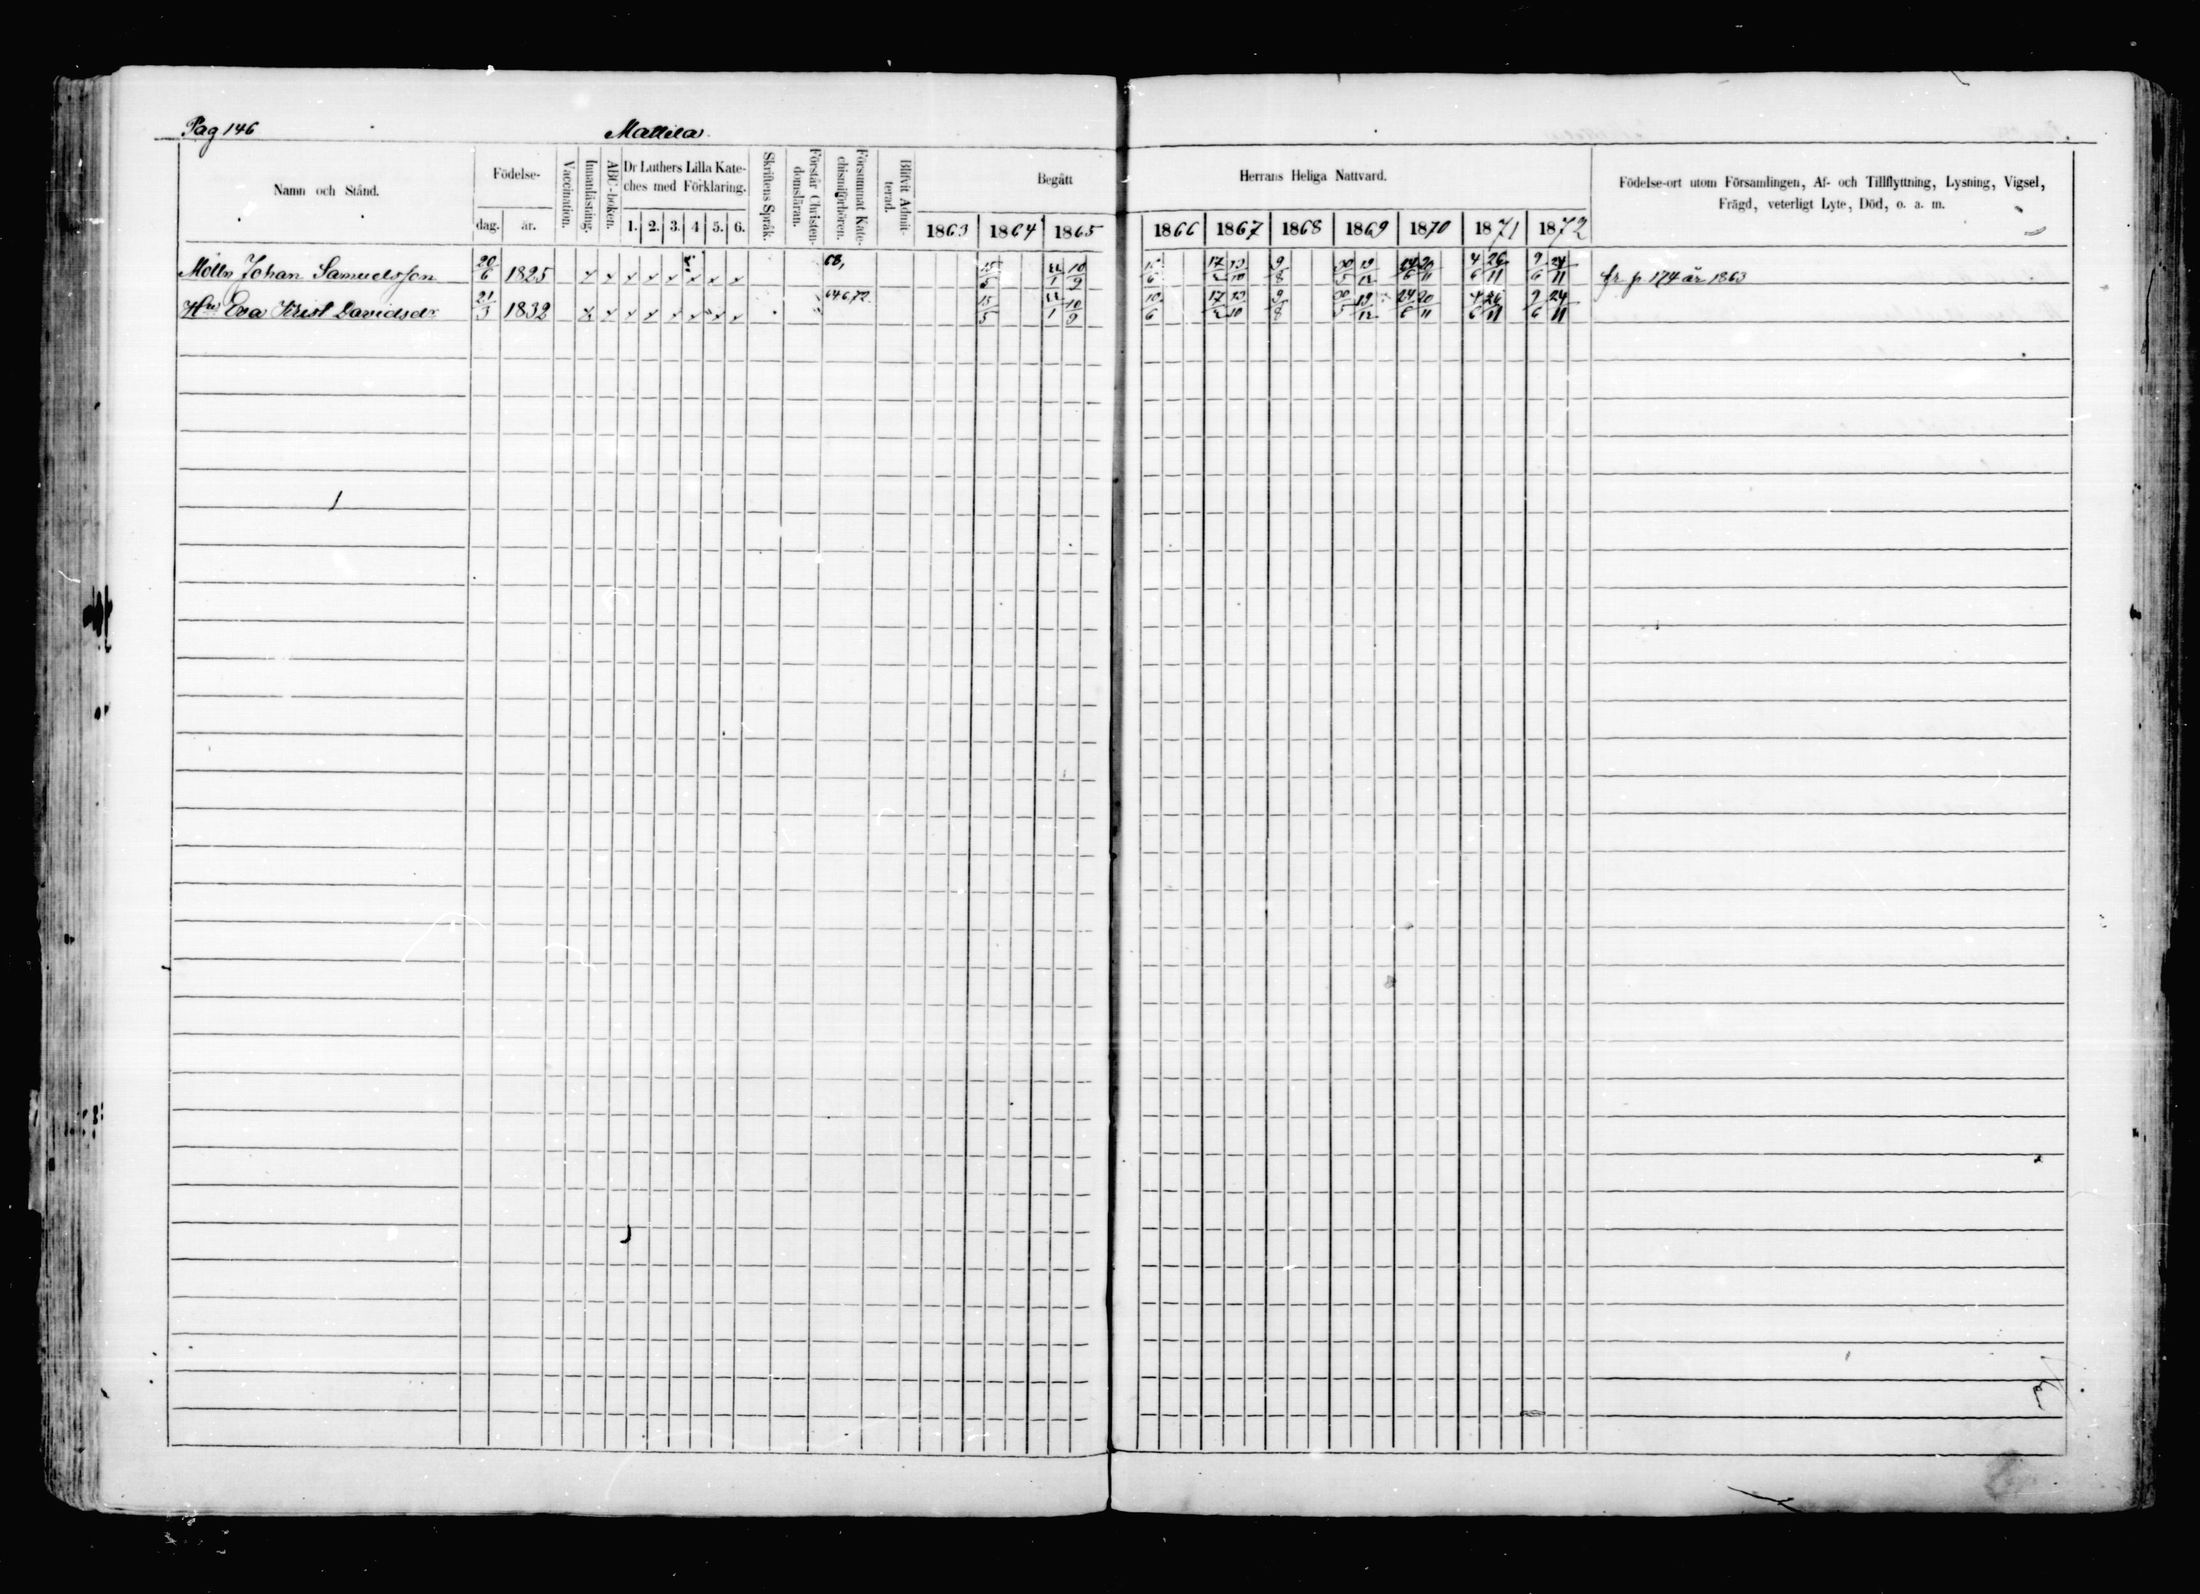 Pag 146 Mattila
Namn och Stånd. Födelse- dag. år. Vaccination. Innanläsning. ABC-boken. Dr Luthers Lilla Kateches med Förklaring. 1. 2. 3. 4 5. 6. Skriftens Språk. Förstår Christendomsläran. Försummat Katechismiförhören. Blifvit Admitterad. Begått Herrans Heliga Nattvard. Födelse-ort utom Församlingen, Af- och Tillflyttning, Lysning, Vigsel,
Frägd, veterligt Lyte, Död, o. a. m.
1863 1864 1865 1866 1867 1868 1869 1870 1871 1872
Johan Samuelsson 20/6 1825 68, 15/5 10/9 9/8 24/6 20/11 4/6 26/11 9/6 24/11 fr p 174 år 1863
Hu Eva Krist Davidsdr 21/3 1832 64 6 72 15/5 10/9 10/6 9/8 24/6 20/11 4/6 26/11 9/6 24/11